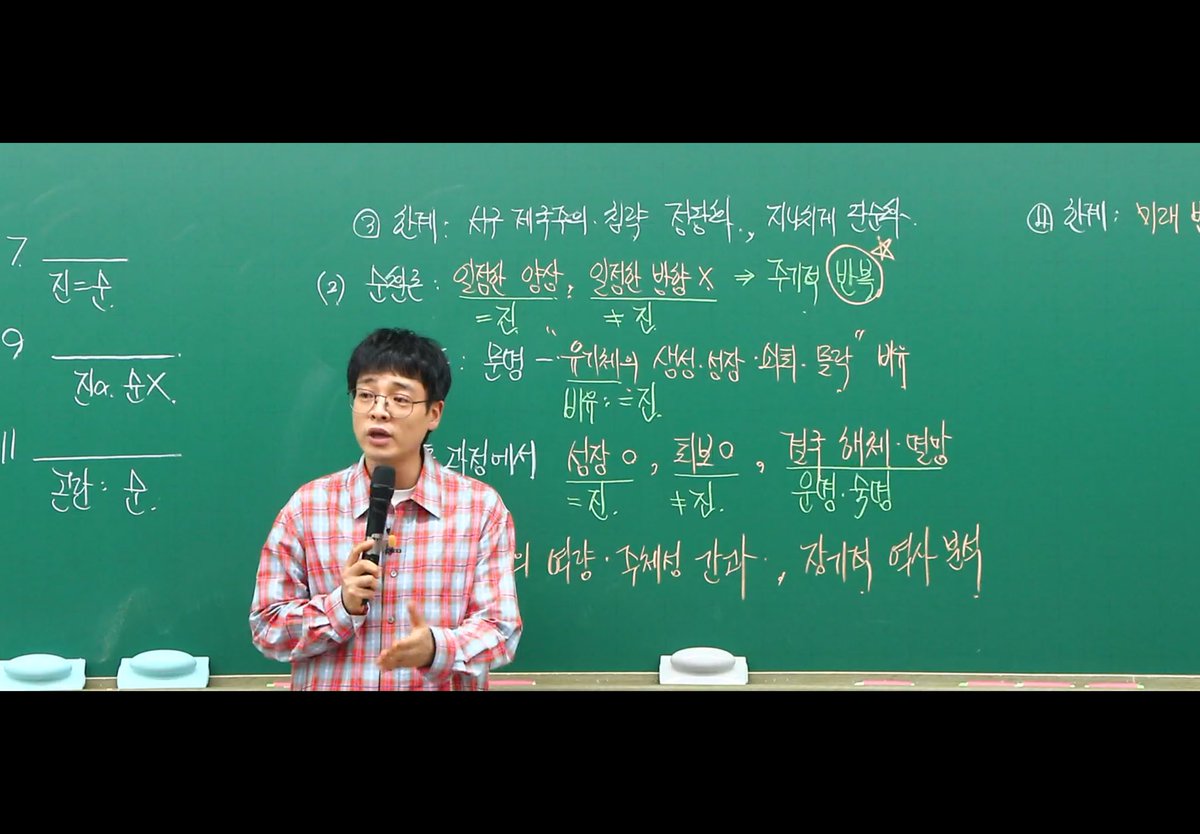 7.
진=순.
9
진a. 순X.
11
곤란: 순.
③ 한계: 서구 제국주의·침략 정당화., 지나치게 단순화.
(2) 순환론: 일정한 양상, 일정한 방향 X ⇒ 주기적 반복 ☆
=진. ≠진.
: 문명 - "유기체의 생성·성장·쇠퇴·몰락" 비유
비유: ≒진.
과정에서 성장 O, 퇴보 O, 결국 해체·멸망
=진. ≠진. 운명·숙명
의 역량·주체성 간과., 장기적 역사 분석
④ 한계: 미래